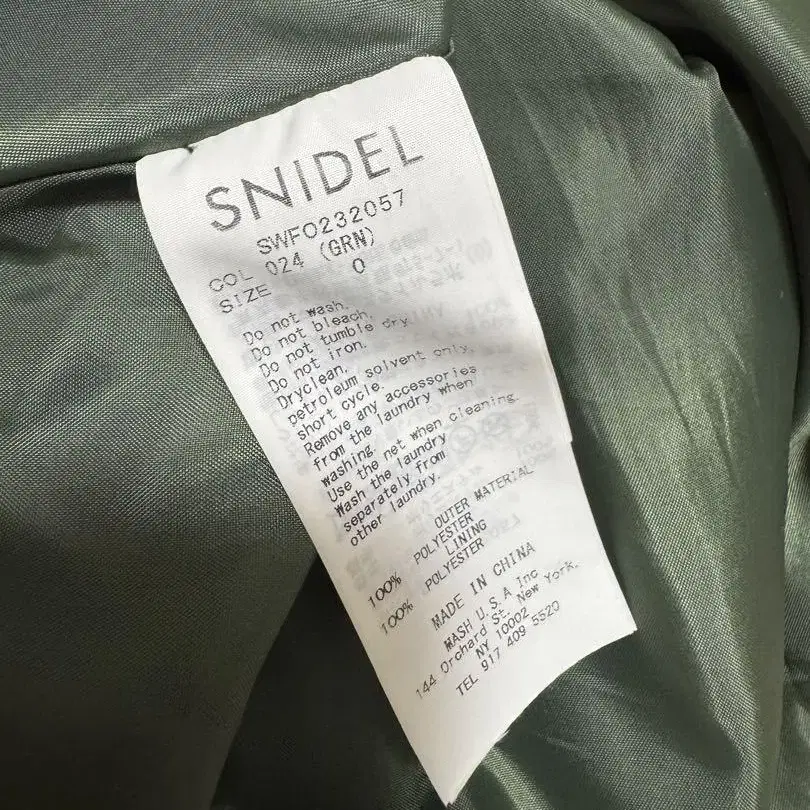 SNIDEL
SWFO232057
COL 024 (GRN)
SIZE 0
Do not wash.
Do not bleach.
Do not tumble dry.
Do not iron.
Dryclean,
petroleum solvent only,
short cycle.
Remove any accessories
from the laundry when
washing.
Use the net when cleaning.
Wash the laundry
separately from
other laundry.
OUTER MATERIAL
100% POLYESTER
LINING
100% POLYESTER
MADE IN CHINA
MASH U.S.A Inc
144 Orchard St. New York.
NY 10002
TEL 917 409 5520